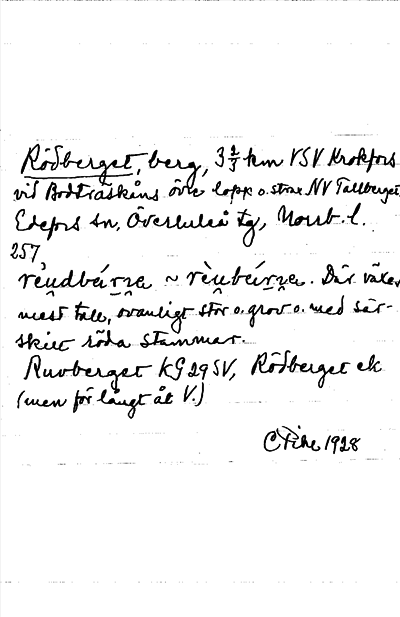 Rödberget, berg, 3 2/3 km VSV Krokfors
vid Bodträskåns övre lopp o. strax NV Tallberget
Edefors sn, Överluleå tg, Norrb. l.
257,
rèudbárṇa ~ rèubárṇa. Där växer
mest tall, ovanligt stor o. grov o. med sär-
skilt röda stammar.
Ruvberget KG 29 SV, Rödberget ek
(men för långt åt V.)
1928